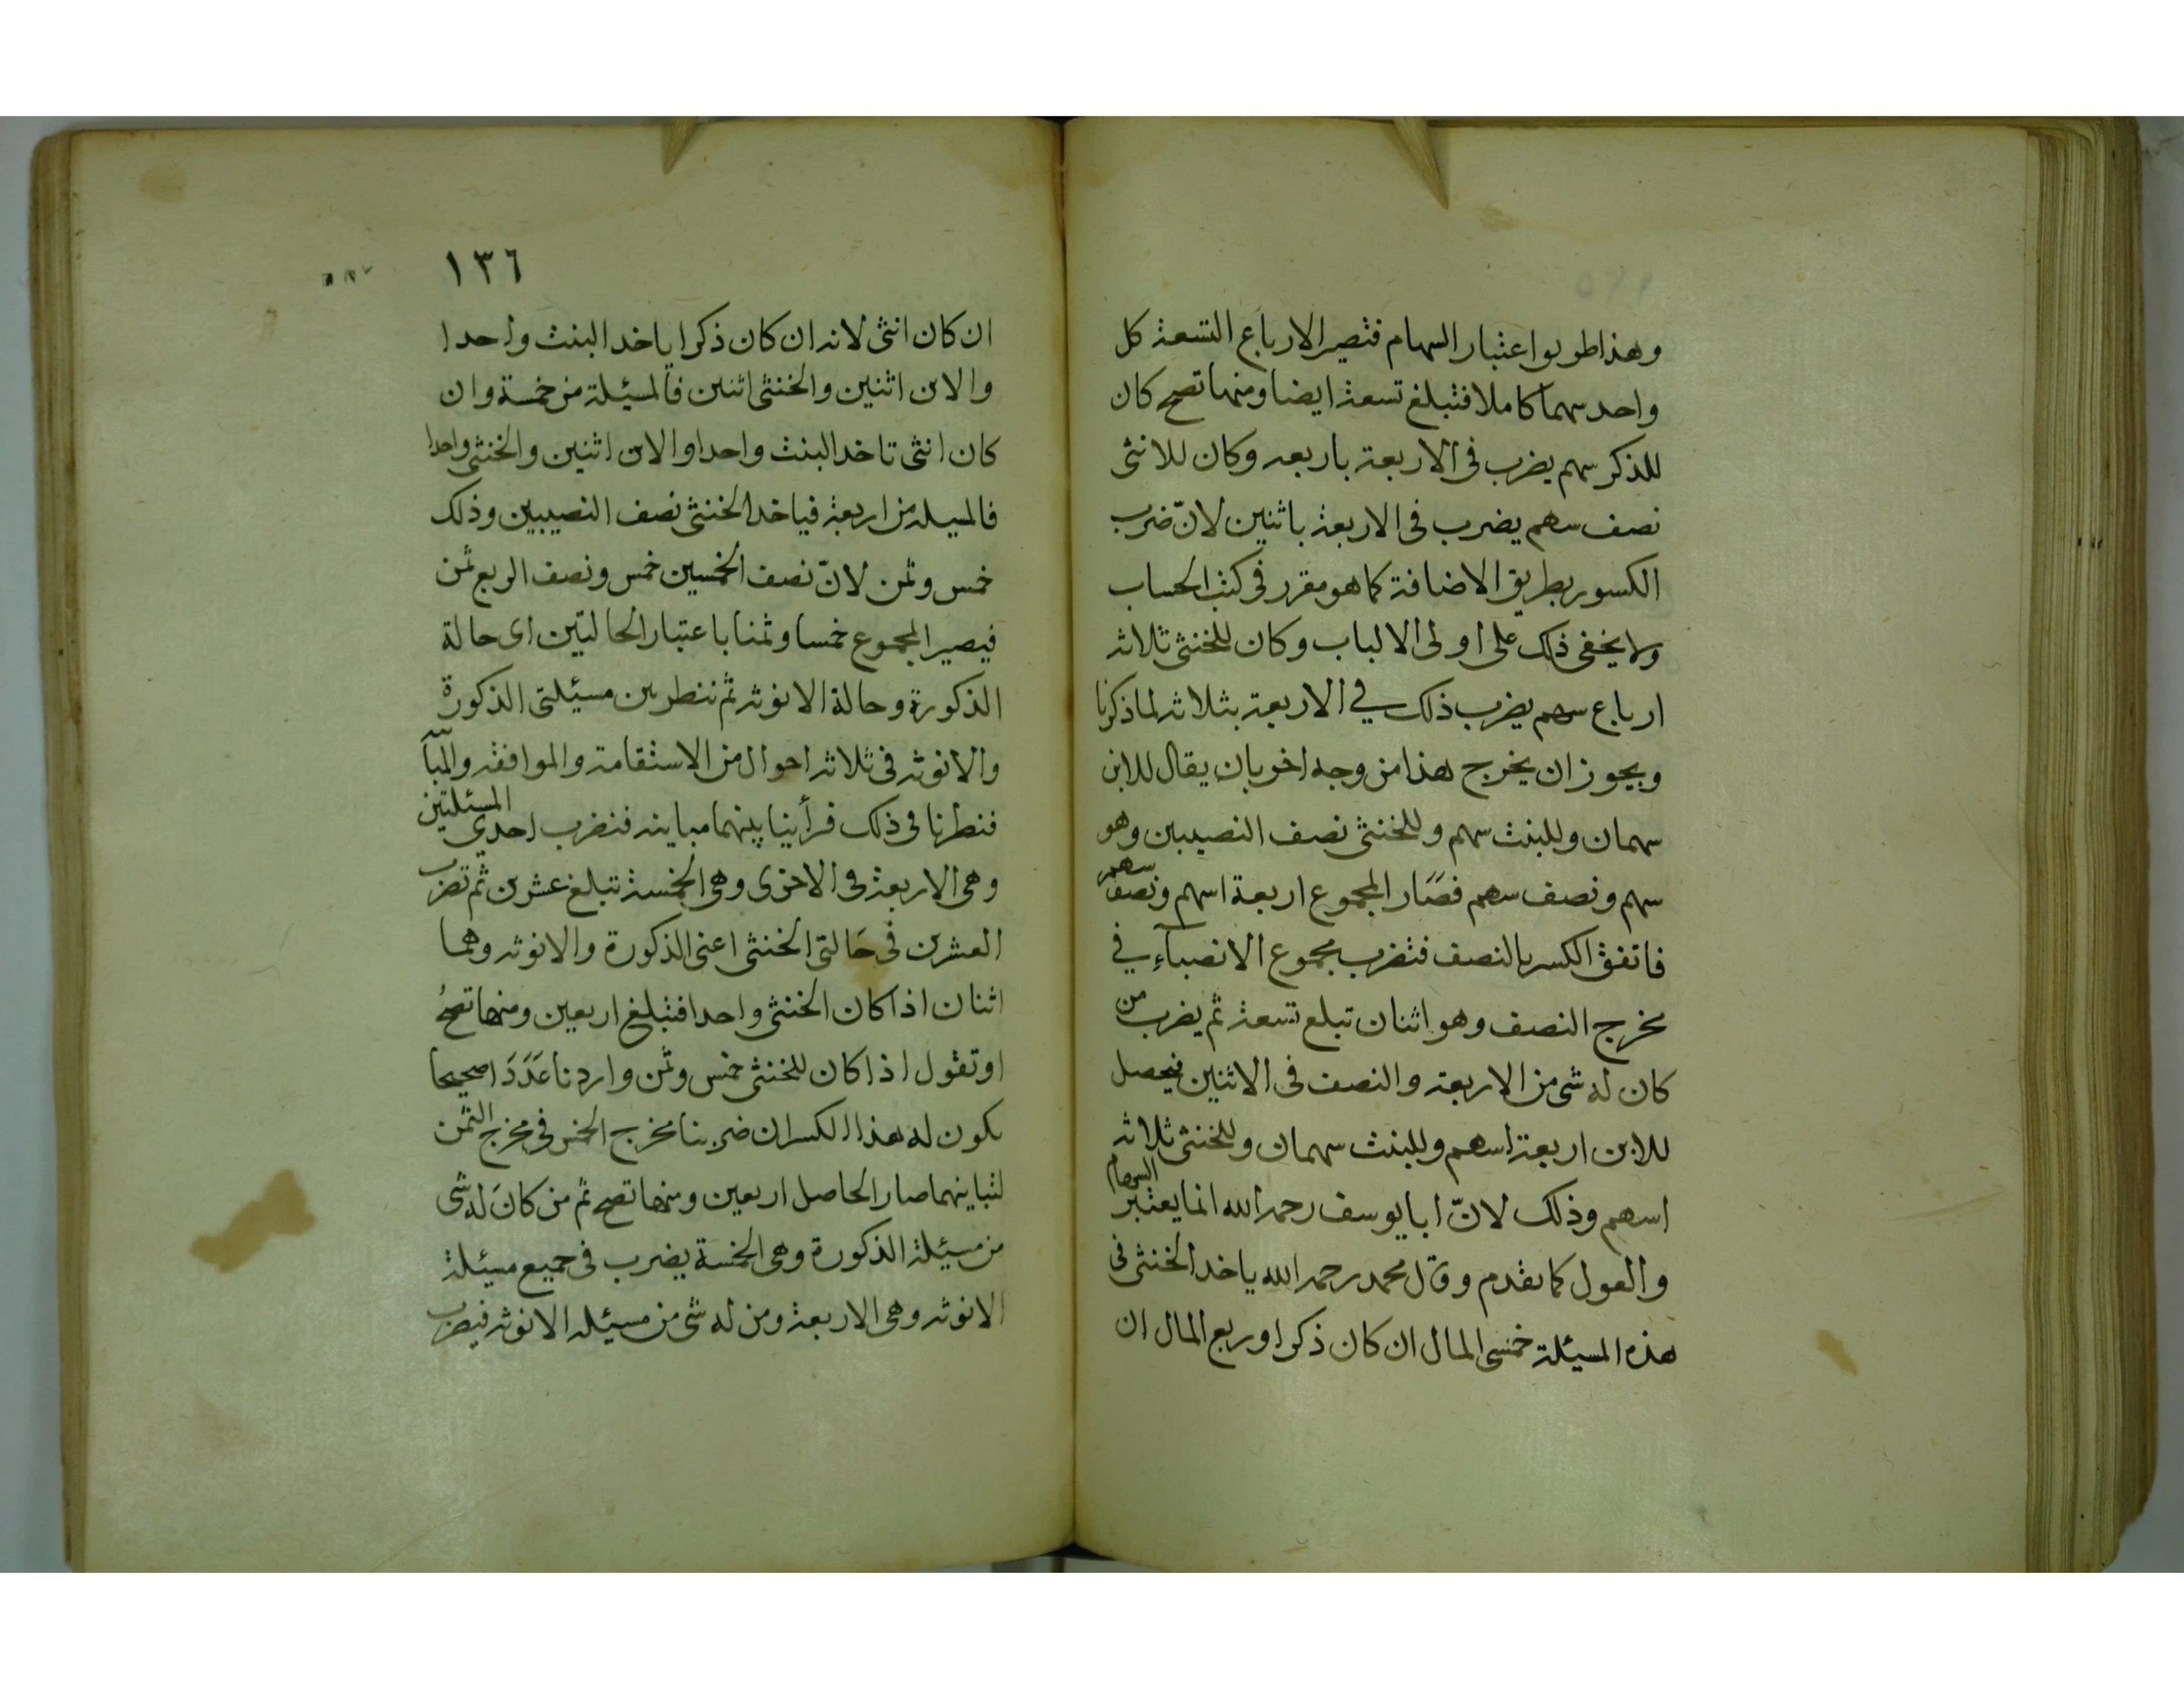 وهذا طريق اعتبار السهام فتصير الارباع التسعة كل
واحد سهما كاملا فتبلغ تسعة ايضا ومنها تصح كان
للذكر سهم يضرب فى الاربعة باربعه وكان للانثى
نصف سهم يضرب فى الاربعة باثنين لانّ ضرب
الكسور بطريق الاضافة كما هو مقرر فى كتب الحساب
ولا يخفى ذلك على اولى الالباب وكان للخنثى ثلاثة
ارباع سهم يضرب ذلك في الاربعة بثلاثة لما ذكرنا
ويجوز ان يخرج هذا من وجه اخر بان يقال للابن
سهمان وللبنت سهم وللخنثى نصف النصيبين وهو
سهم ونصف سهم فصَار المجموع اربعة اسهم ونصف سهم
فاتفق الكسر بالنصف فتضرب مجموع الانصباء في
مخرج النصف وهو اثنان تبلغ تسعة ثم يضرب من
كان له شى من الاربعة والنصف فى الاثنين فيحصل
للابن اربعة اسهم وللبنت سهمان وللخنثى ثلاثة
اسهم وذلك لانّ ابا يوسف رحمه الله انما يعتبر السهام
والعول كما تقدم وقال محمد رحمه الله ياخد الخنثى فى
هذه المسيلة خمسى المال ان كان ذكرا وربع المال ان
١٣٦
ان كان انثى لانه ان كان ذكرا ياخد البنت واحدا
والابن اثنين والخنثى اثنين فالمسيلة من خمسة وان
كان انثى تاخد البنت واحدا والابن اثنين والخنثى واحدا
فالمسيلة من اربعة فياخد الخنثى نصف النصيبين وذلك
خمس وثمن لانّ نصف الخمسين خمس ونصف الربع ثمن
فيصير المجموع خمسا وثمنا باعتبار الحالتين اى حالة
الذكورة وحالة الانوثه ثم ننظر بين مسيلتى الذكورة
والانوثه فى ثلاثة احوال من الاستقامة والموافقة والمبا
فنظرنا فى ذلك فرأينا بينهما مباينه فنضرب احدى المسئلتين
وهى الاربعة فى الاخرى وهى الخمسة تبلغ عشرين ثم تضرب
العشرين فى حَالتى الخنثى اعنى الذكورة والانوثه وهما
اثنان اذا كان الخنثى واحدا فتبلغ اربعين ومنها تصحُ
او تقول اذا كان للخنثى خمس وثمن واردنا عَدَدَا صحيحا
يكون له هذا الكسران ضربنا مخرج الخمس فى مخرج الثمن
لتباينهما صار الحاصل اربعين ومنها تصح ثم من كانَ له شى
من مسيلة الذكورة وهى الخمسة يضرب فى جميع مسيلة
الانوثه وهى الاربعة ومن له شى من مسيلة الانوثه فيضرب